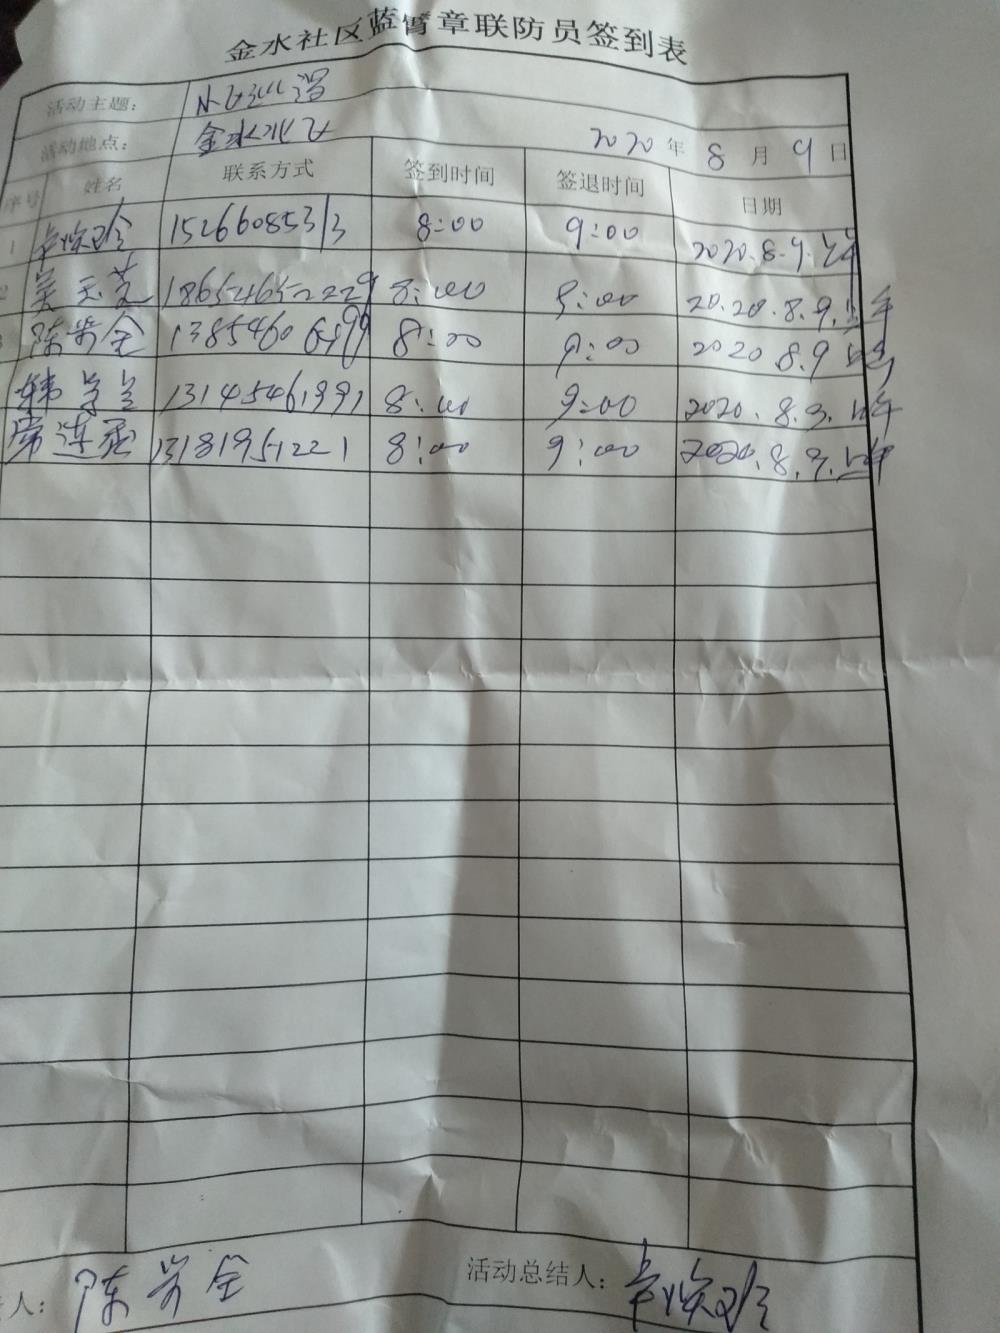 金水社区蓝臂章联防员签到表
活动主题：
活动地点： 金水 2020年8月9日
序号 姓名 联系方式 签到时间 签退时间 日期
1 卢焕玲 15266085313 8:00 9:00 2020.8.9.上午
2 吴玉芝 18654652229 8:00 9:00 2020.8.9.上午
3 陈岩全 8:00 9:00 2020 8.9
韩 13145461991 8:00 9:00 2020.8.9.上午
常连 13181951221 8:00 9:00 2020.8.9.上午
人： 陈岩全 活动总结人： 卢焕玲